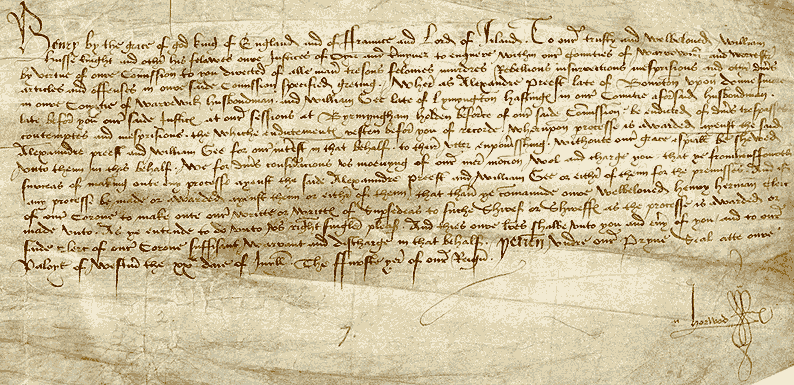 Henry by the grace of god king of England and of ffraunce and Lord of Irland. To our trusty and welbeloved William
Husse knight and other his felawes oure Justices of Oyer and to enquere within our Counties of Warrewik and
by vertue of oure Comission to you directed of alle man tresons felonies murdres Rebellions insurrections mesprisions and other
articles and offenses in oure saide Comission specified greting. Wher as Alexandre Preest late of upon
in oure Countie of Warrewik husbondman. and William Gee late of hastinges in our Countie aforsaid husbondman.
late before you our saide Justices at our sessions at Bymyngham holden by force of our saide Comission. be endited of trespasses
contemptes and mesprisions. the whiche enditementes resten before you of record. Wherupon processe is awarded ayenst the said
Alexandre preest and William Gee for our intrest in that behalf. to thair utter enpovrisshing. withoute our grace especiall be shewed
unto them in this behalf. We for considerations us moeuyng of our mere mocion Wol and charge you that ye
surcesse of making oute eny processe ayenst the saide Alexandre Preest and William Gee or either of them for the premisses. And if
any processe be made or awarded ayenst them or either of them. that than ye comaunde oure Welbeloved henry clerc
of our Corone to make oute our writte or writtes of Supsedeas to suche Shiref or Shireffes as the processe is awarded or
made unto. As ye entende to do unto us right singler pleasir. And thies oure lettres shalbe unto you and eny of you and to our
saide clerc of our Corone suffisant Warrant and discharge in that behalf. Yeven undre our Prive Seal atte oure
Paloys of Westm the daie of The ffurste yer of oure Reign.
horwod
7.